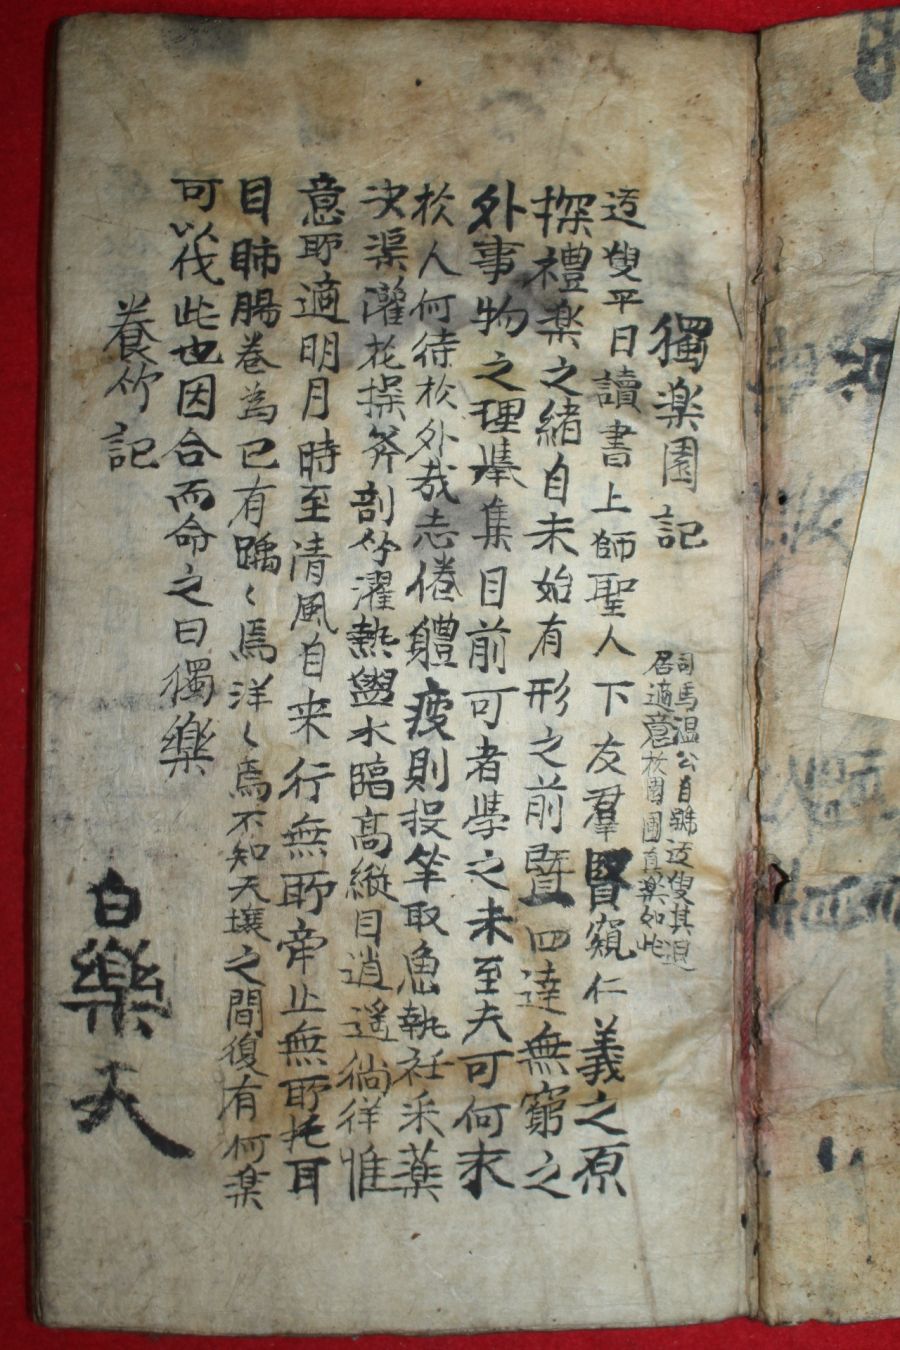 獨楽園記
司馬温公自號迂叟其退
居適意於園圃自楽如此
迂叟平日讀書上師聖人下友羣賢窺仁義之原
探禮楽之緒自未始有形之前曁四達無窮之
外事物之理擧集目前可者學之未至夫可何求
於人何待於外哉志倦軆疲則投竿取魚執衽采薬
决渠灌花操斧剖竹濯熱盥水臨高縱目逍遥徜徉惟
意所適明月時至清風自来行無所牽止無所抳耳
目肺腸卷為已有踽〻焉洋〻焉不知天壤之間復有何楽
可以代此也因合而命之曰獨樂
養竹記
白樂天